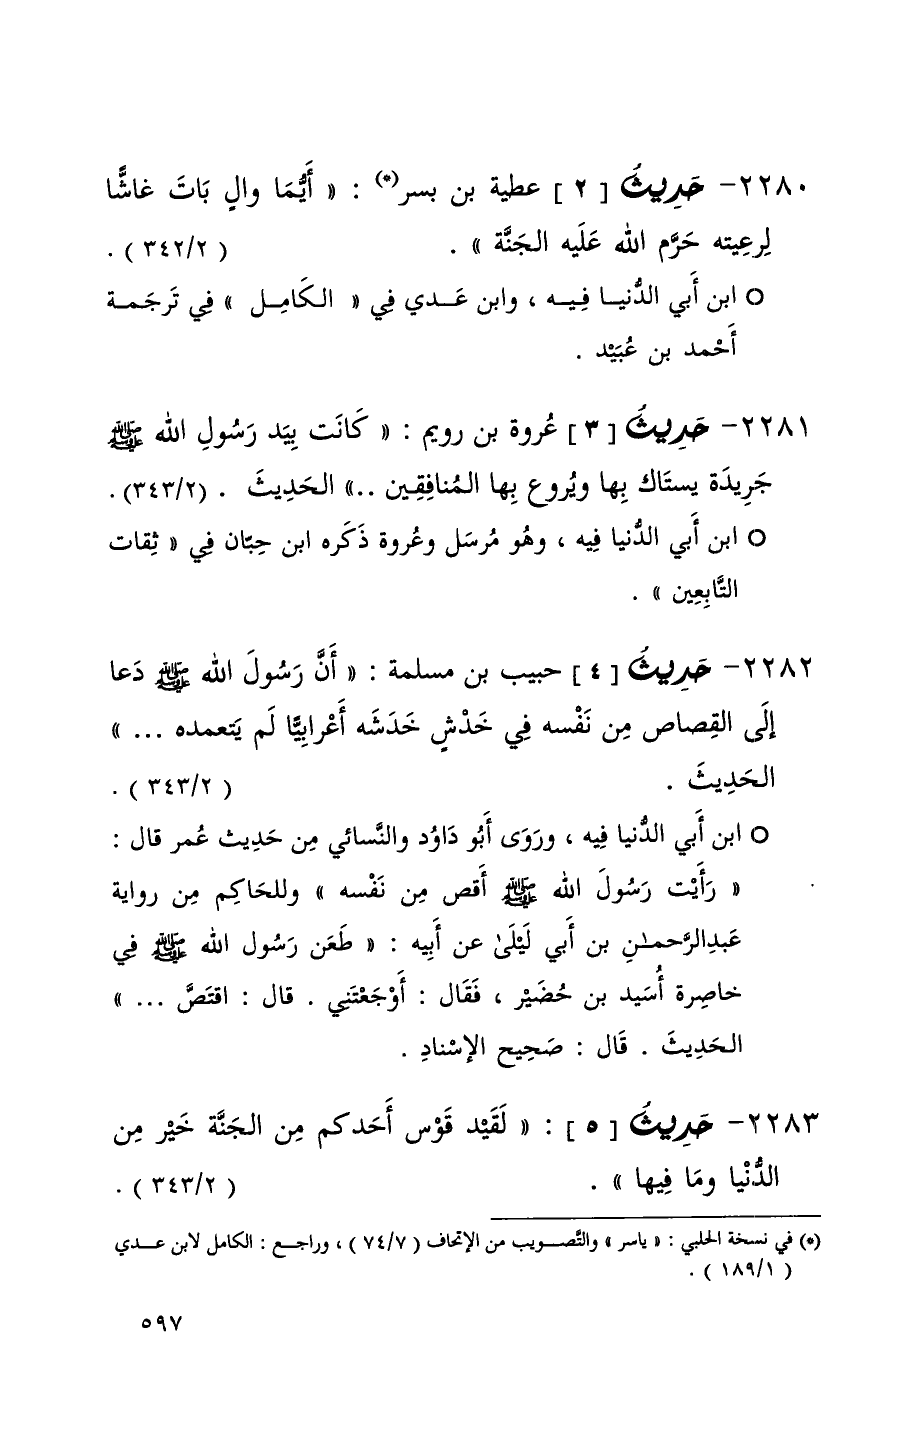 ٢٢٨٠- حَدِيثُ [ ٢ ] عطية بن بسر(*) : « أَيُّمَا والٍ بَاتَ غاشًّا
لِرعِيته حَرَّم الله عَلَيه الجَنَّة » . ( ٣٤٢/٢ ) .
○ ابن أَبي الدُّنيا فِيه ، وابن عَدي فِي « الكَامِل » فِي تَرجَمة
أَحْمد بن عُبَيْد .
٢٢٨١- حَدِيثُ [ ٣ ] عُروة بن رويم : « كَانَت بِيَد رَسُولِ الله ﷺ
جَرِيدَة يستَاك بِها ويُروع بِها المُنافِقِين ..» الحَدِيثَ . (٣٤٣/٢).
○ ابن أَبي الدُّنيا فِيه ، وهُو مُرسَل وعُروة ذَكَره ابن حِبّان فِي « ثِقات
التَّابِعِين » .
٢٢٨٢- حَدِيثُ [ ٤ ] حبيب بن مسلمة : « أَنَّ رَسُولَ الله ﷺ دَعا
إلَى القِصاص مِن نَفْسه فِي خَدْشٍ خَدَشَه أَعْرابِيًّا لَم يَتعمده ... »
الحَدِيثَ . ( ٣٤٣/٢ ) .
○ ابن أَبي الدُّنيا فِيه ، ورَوَى أَبُو دَاوُد والنَّسائي مِن حَدِيث عُمر قال :
« رَأَيْت رَسُولَ الله ﷺ أَقص مِن نَفْسه » وللحَاكِم مِن رواية
عَبدِالرَّحمـٰنِ بن أَبي لَيْلَىٰ عن أَبِيه : « طَعَن رَسُول الله ﷺ فِي
خاصِرة أُسَيد بن حُضَيْر ، فَقَال : أَوْجَعْتَنِي . قال : اقتَصَّ ... »
الحَدِيثَ . قَال : صَحِيح الإسْنادِ .
٢٢٨٣- حَدِيثُ [ ٥ ] : « لَقَيْد قَوْس أَحَدكم مِن الجَنَّة خَيْر مِن
الدُّنْيا ومَا فِيها » . ( ٣٤٣/٢ ) .
(*) في نسخة الحلبي : « ياسر » والتَّصويب من الإتحاف ( ٧٤/٧ ) ، وراجع : الكامل لابن عدي
( ١٨٩/١ ) .
٥٩٧